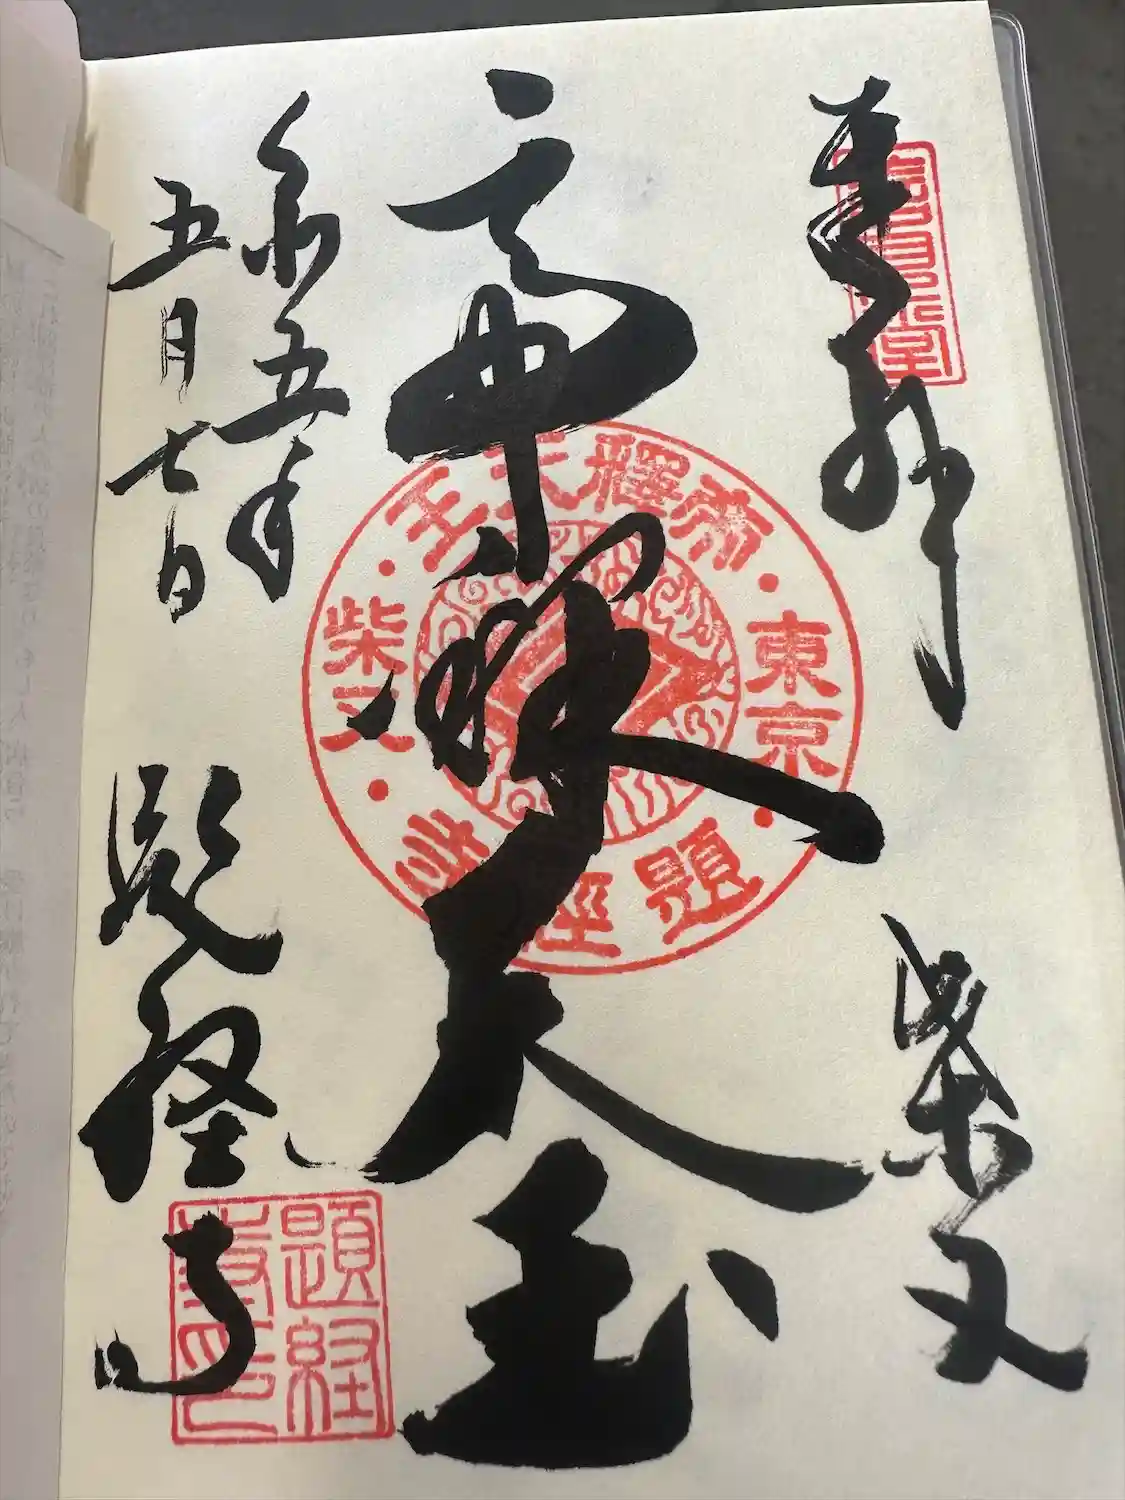 奉拝
柴又
帝釈天王
令和五年
五月七日
題経寺
帝釋天王
東京
柴又
題經寺
題経寺印